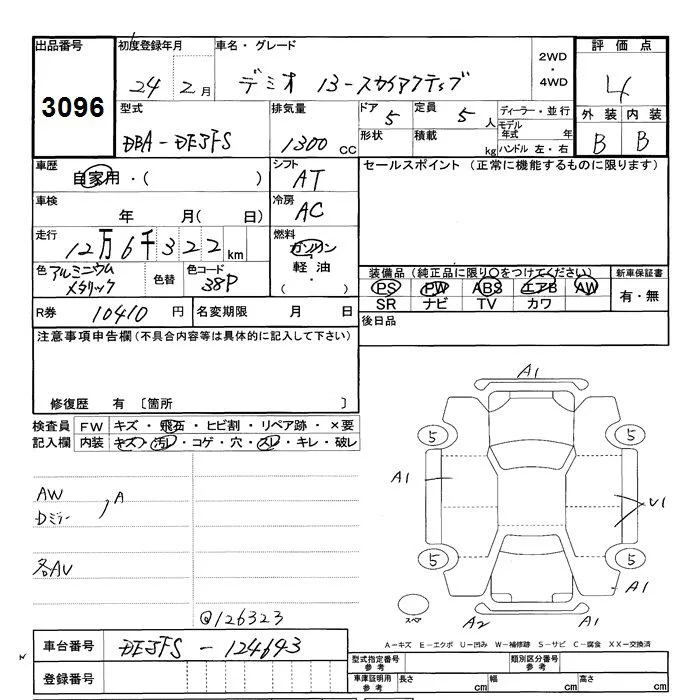 出品番号 3096
初度登録年月 24 2月
車名・グレード デミオ 13-スカイアクティブ
2WD・4WD
評価点 4
外装 内装
B B
型式 DBA-DE3FS
排気量 1300cc
ドア 5
定員 5人
形状 積載 kg
ディーラー・並行
モデル年式 年
ハンドル 左・右
車歴 自家用・( )
シフト AT
セールスポイント (正常に機能するものに限ります)
車検 年 月( 日)
冷房 AC
走行 12万6千322km
燃料 ガソリン
軽油
・( )
色 アルミニウムメタリック
色替
色コード 38P
装備品 (純正品に限り○をつけてください)
PS PW ABS エアB AW
SR ナビ TV カワ
新車保証書
有・無
R券 10410円
名変期限 月 日
後日品
注意事項申告欄(不具合内容等は具体的に記入して下さい)
修復歴 有 〔箇所 〕
検査員記入欄
FW キズ・飛石・ヒビ割・リペア跡・×要
内装 キズ・汚レ・コゲ・穴・スレ・キレ・破レ
AW
Dミラー
A
各AU
@126323
A1
5 5
A1
U1
5 5
A1
スペア
A2 A1
A－キズ E－エクボ U－凹み W－補修跡 S－サビ C－腐食 XX－交換済
車台番号 DE3FS-124643
登録番号
型式指定番号 参考
類別区分番号 参考
車庫証明用 参考
長さ cm 幅 cm 高さ cm